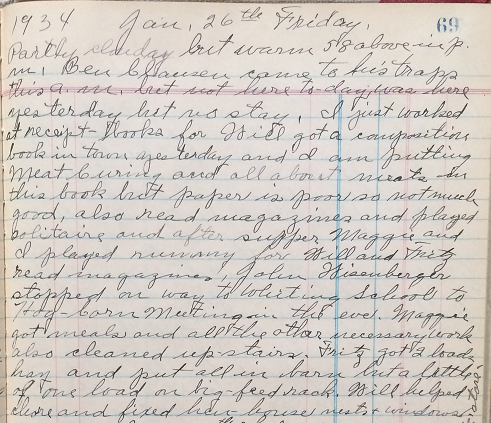 1934 Jan, 26th Friday, 69
Partly clouday but warm 58 above in p.
m, Ben Claussen came to his traps
this a.m. but not here to-day, was here
yesterday but no stay, I just worked
at receipt-books for Will got a composition
book in town yesterday and I am putting
Meat Curing and all about meats in
this book but paper is poor so not much
good, also read magazines and played
solitaire and after supper Maggie and
I played rummy for Will and Fritz
read magazines, John Wisenberger
stopped on way to Whiting School to
Hog-Corn Meeting in the eve. Maggie
got meals and all the other necessary work
also cleaned up-stairs. Fritz got 2 loads
hay and put all in barn but a little
of one load on big-feed rack. Will helped
chore and fixed hen house nests + windows